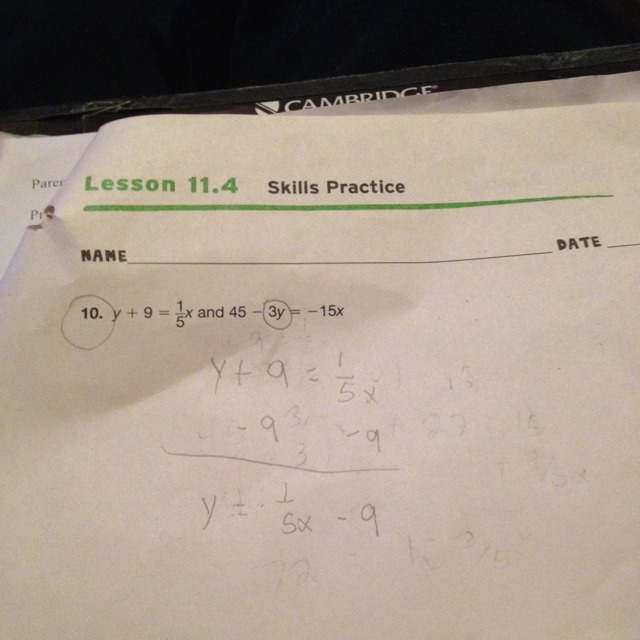 CAMBRIDGE
Lesson 11.4 Skills Practice
NAME
DATE
10. y + 9 = 1/5x and 45 - 3y = -15x
y + 9 = 1/5x
- 9 - 9
y = 1/5x - 9